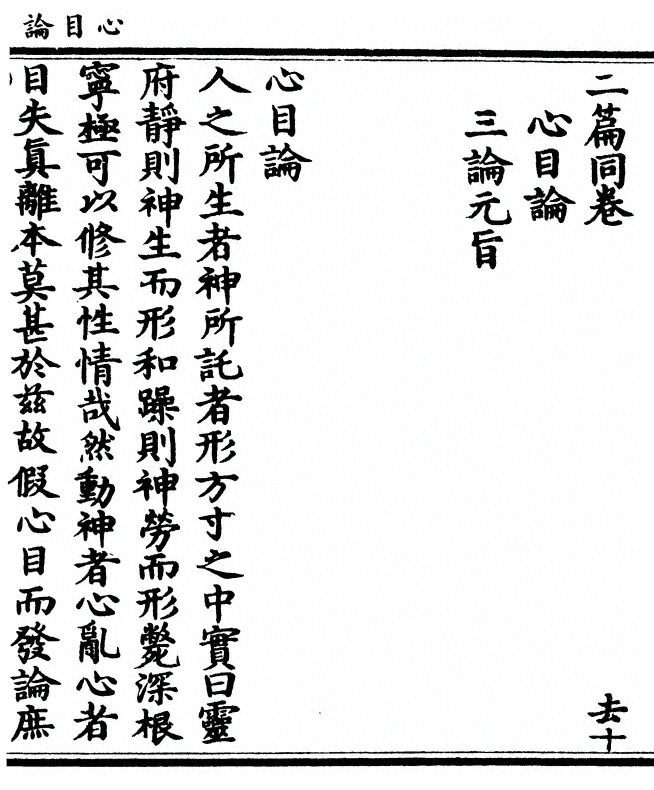 心目論
二篇同卷
去十
心目論
三論元旨
心目論
人之所生者神所託者形方寸之中實曰靈
府靜則神生而形和躁則神勞而形斃深根
寧極可以修其性情哉然動神者心亂心者
目失真離本莫甚於茲故假心目而發論庶